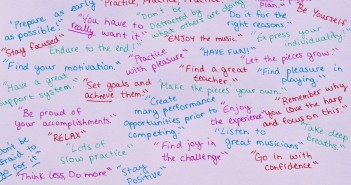 "Prepare as early
as possible!"
Practice, Practice, Practice
plan."
"Be Yourself
"Stay focused"
"You have to
really want it."
"Don't be
Distracted by
what others are doing
Do it for the
right reasons."
"ENJOY the music"
"Express your
individuality!"
"Endure to the end!"
"HAVE FUN!"
"Let the pieces grow."
"Find your motivation."
"Practice
with
pleasure"
"Find a great
teacher"
"Find pleasure in
playing"
"Have a great
support system."
"Set goals and
achieve them."
"Make the pieces your own."
"Remember why
you love the harp
and focus on this"
"Be proud of
your accomplishments"
"Create
many performance
opportunities prior to
competing"
"Enjoy
the experience"
"RELAX"
"Listen to
great musicians"
"Take deep
breaths."
"Don't be
afraid to
go for it"
"Lots of
slow practice"
"Find joy in
the challenge"
"Go in with
confidence"
"Think less, Do more"
"Stay
Positive"